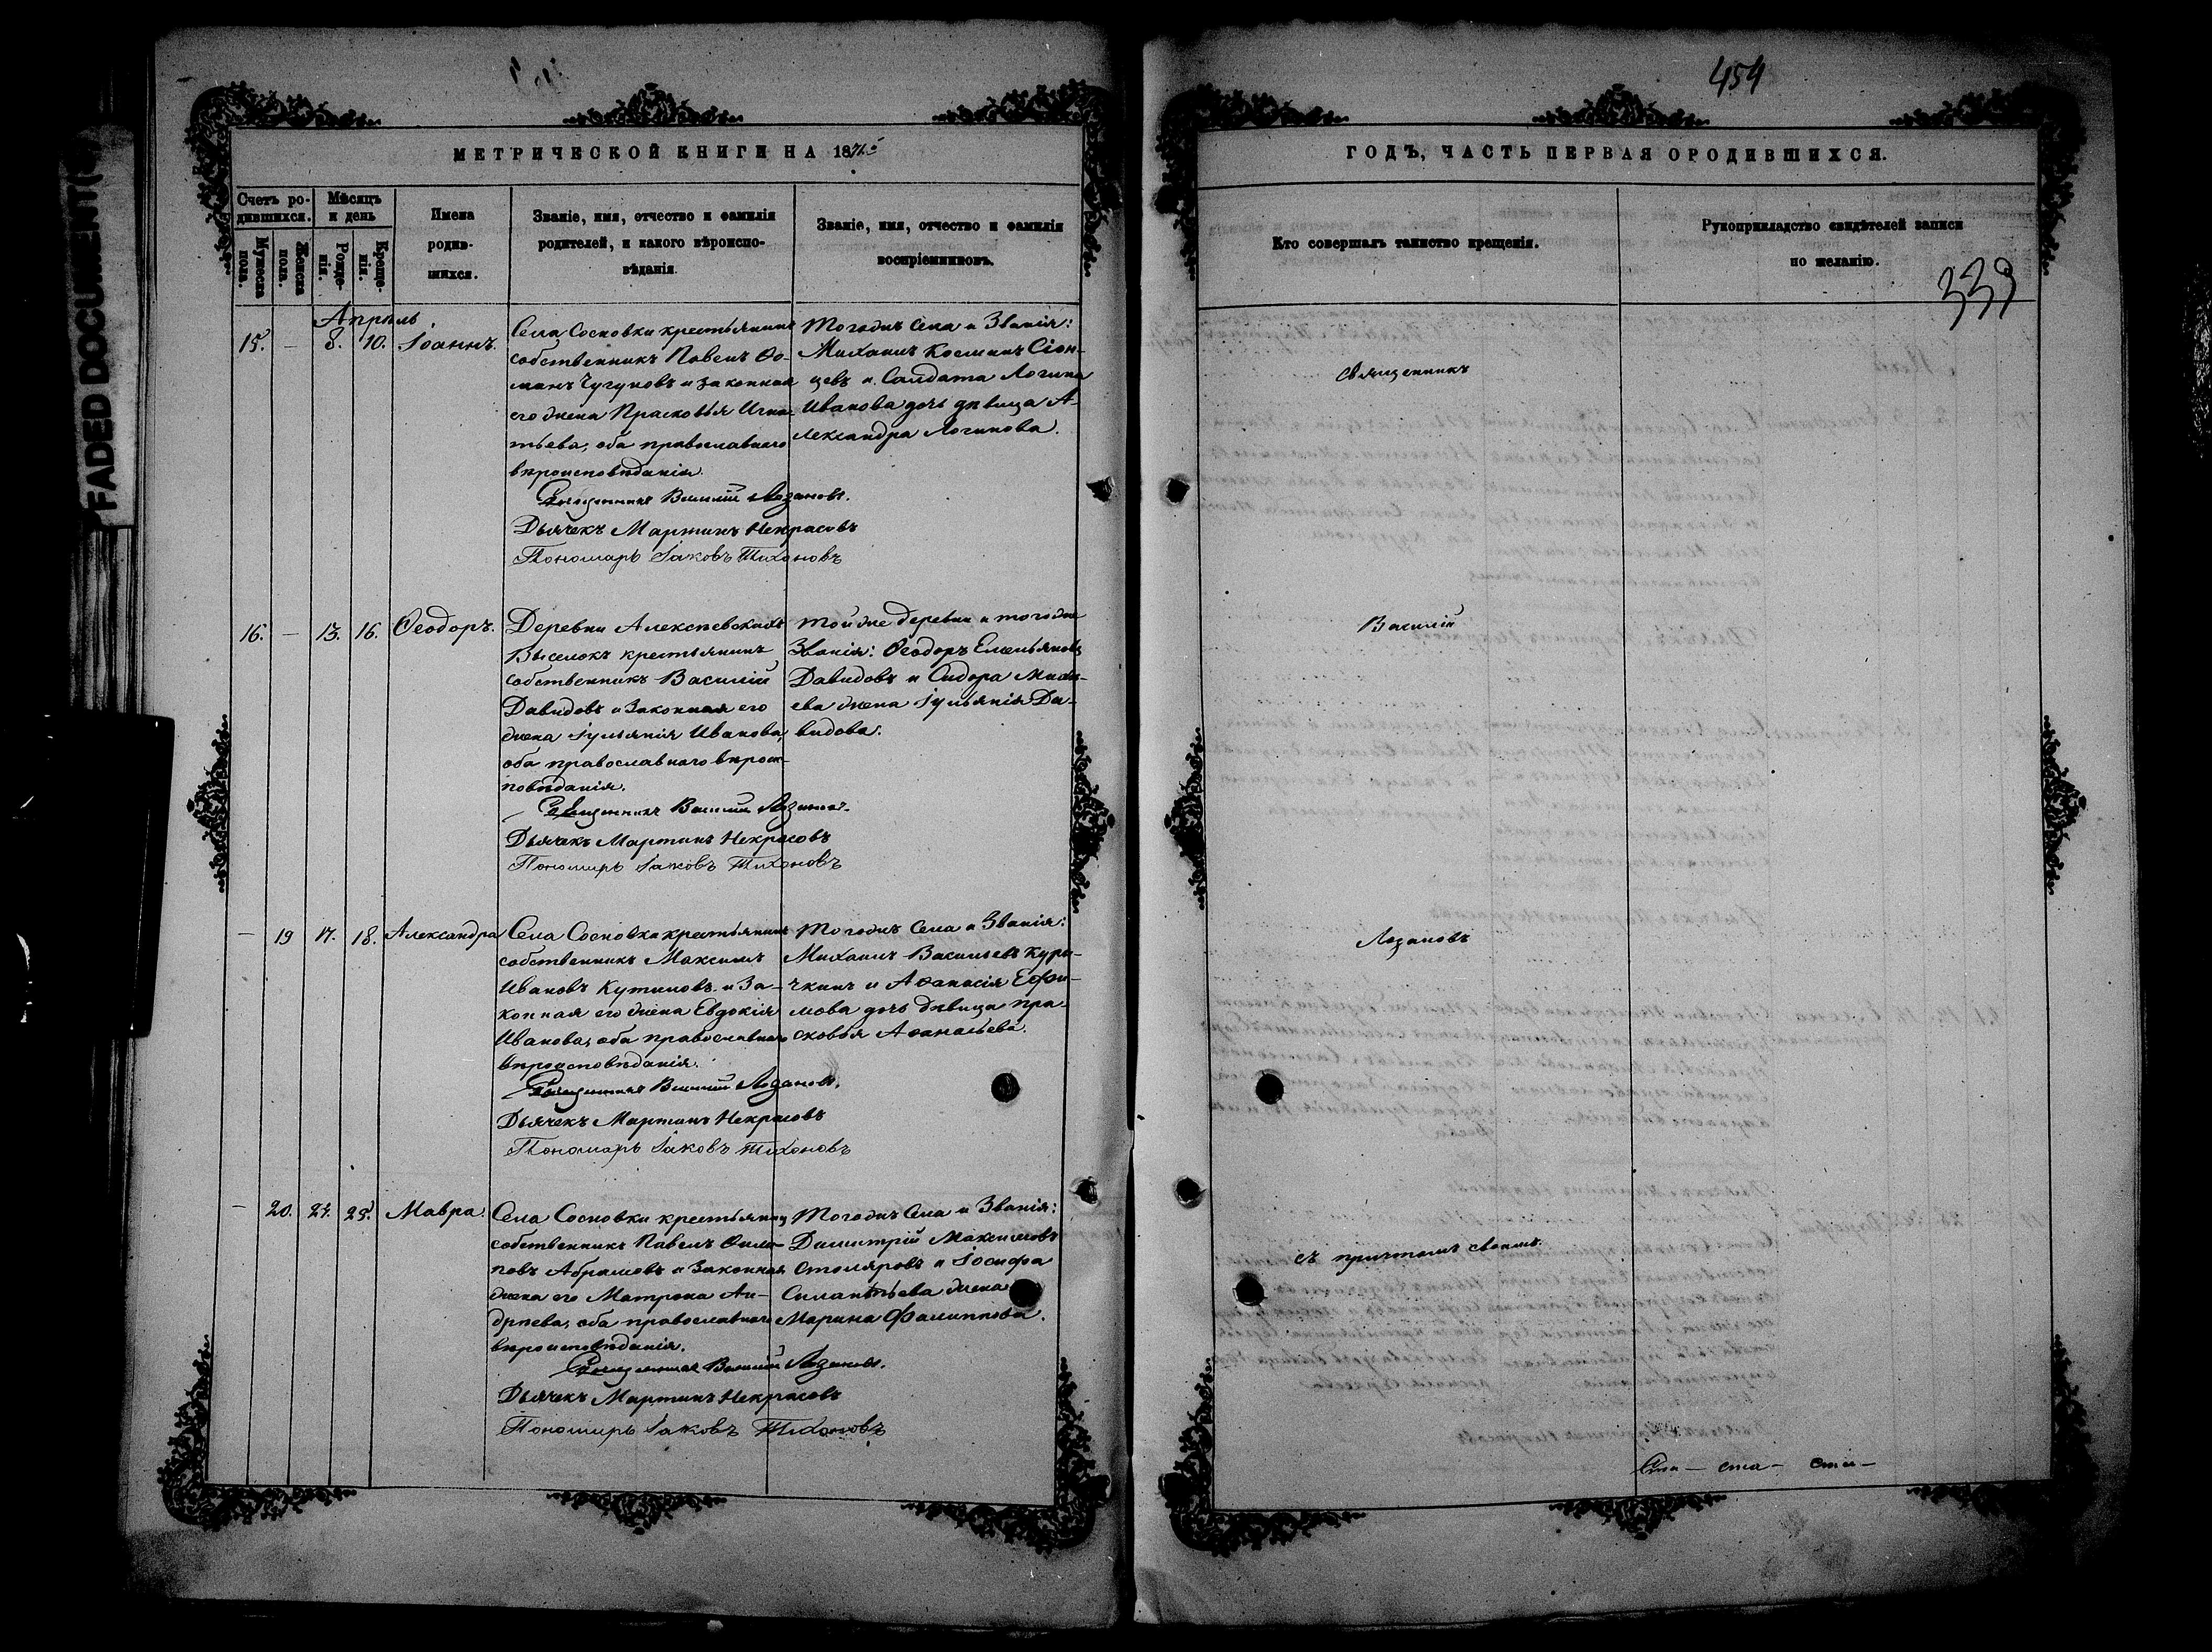 454
МЕТРИЧЕСКОЙ КНИГИ НА 1871й
ГОДЪ, ЧАСТЬ ПЕРВАЯ О РОДИВШИХСЯ.
Счетъ ро-
дившихся.
Мужеска
пола.
Женска
пола.
Мѣсяцъ
и день
Рожде-
нія.
Креще-
нія.
Имена
родив-
шихся.
Званіе, имя, отчество и фамилія
родителей, и какого вѣроиспо-
вѣданія.
Званіе, имя, отчество и фамилія
воспріемниковъ.
Кто совершалъ таинство крещенія.
Рукоприкладство свидѣтелей записи
по желанію.
339
Апрѣль
15. — 8. 10. Іоаннъ.
Села Сосновки крестьянинъ
собственникъ Павелъ Ѳо-
минъ Чугуновъ и законная
его жена Прасковья Игна-
тьева, оба православнаго
вѣроисповѣданія.
Священникъ Василій Лозановъ.
Дьячекъ Мартинъ Некрасовъ
Пономарь Іаковъ Тихоновъ
Тогожъ Села и Званія:
Михаилъ Косминъ Сіон-
цевъ и Солдата Логина
Иванова дочь дѣвица А-
лександра Логинова.
16. — 13. 16. Ѳеодоръ.
Деревни Алексѣевскихъ
Выселокъ крестьянинъ
собственникъ Василій
Давидовъ и Законная его
жена Іульянія Иванова,
оба православнаго вѣроис-
повѣданія.
Священникъ Василій Лозановъ.
Дьячекъ Мартинъ Некрасовъ
Пономарь Іаковъ Тихоновъ
Тойже деревни и тогоже
Званія: Ѳеодоръ Емельяновъ
Давидовъ и Сидора
ева жена Іульянія Да-
видова.
— 19 17. 18. Александра
Села Сосновки крестьянинъ
собственникъ Максимъ
Ивановъ Кутиловъ и За-
конная его жена Евдокія
Иванова, оба православнаго
вѣроисповѣданія.
Священникъ Василій Лозановъ.
Дьячекъ Мартинъ Некрасовъ
Пономарь Іаковъ Тихоновъ
Тогожъ Села и Званія:
Михаилъ Васильевъ Кури-
чкинъ и Аѳанасія Ефи-
мова дочь дѣвица Пра-
сковья Аѳанасьева.
— 20. 24. 25. Мавра.
Села Сосновки крестьянинъ
собственникъ Павелъ Фили-
повъ Абрамовъ и Законная
жена его Матрона Ан-
дреева, оба православнаго
вѣроисповѣданія.
Священникъ Василій Лозановъ.
Дьячекъ Мартинъ Некрасовъ
Пономарь Іаковъ Тихоновъ
Тогожъ Села и Званія:
Димитрій Максимовъ
Столяровъ и Іосифа
Силантьева жена
Марина Филиппова.
Священникъ
Василій
Лозановъ
съ причтомъ своимъ.
FADED DOCUMENT(S)